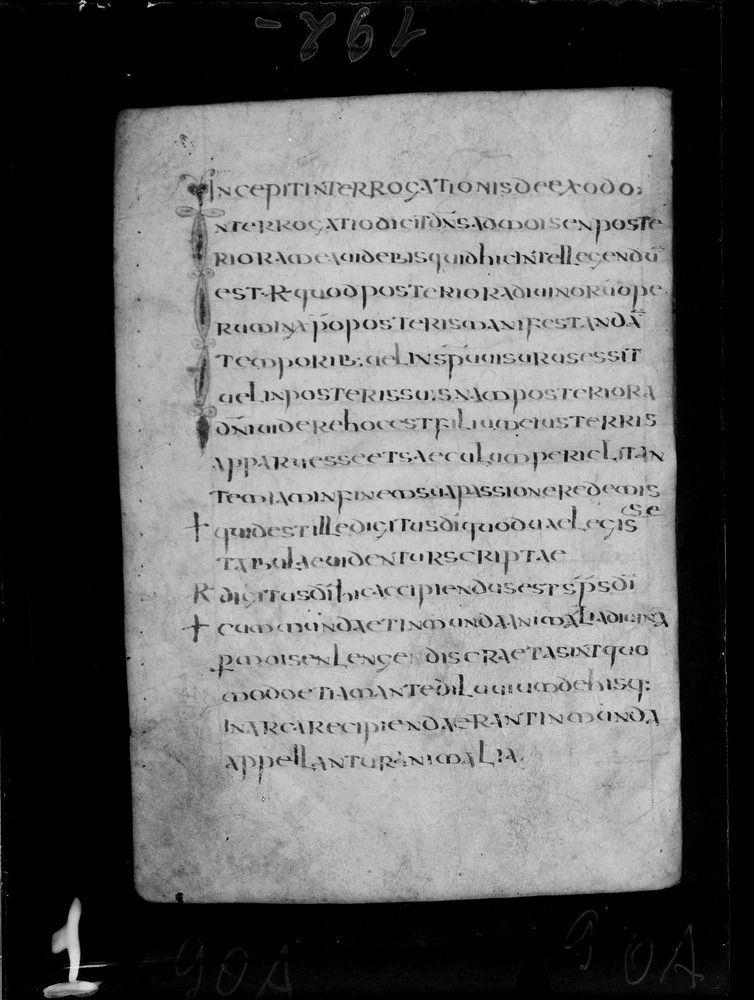 192-
INCEPIT INTERROGATIONIS DE EXODO;
INTERROGATIO DICIT DN̄S AD MOISEN POSTE
RIORA MEA UIDEBIS QUID HIC INTELLEGENDŪ
EST· R̄ QUOD POSTERIORA DIUINORŪ OPE
RUM IN XP̄O POSTERIS MANIFESTANDĀ
TEMPORIB; UEL IN SPŪ UISURUS ESSIT
UEL IN POSTERIS SUIS NAM POSTERIORA
DN̄I UIDERE HOC EST FILIUM EIUS TERRIS
APPARUESSE ET SAECULUM PERICLITAN
TEM IAM IN FINEM SUA PASSIONE REDEMIS
SE
† QUID EST ILLE DIGITUS DĪ QUOD UAEL EGIS
TABULAE UIDENTUR SCRIPTAE
R DIGITUS DĪ HIC ACCIPIENDUS EST SP̄S DĪ
† CUM MUNDA ET INMUNDA ANIMALIA DIUINA
P̱ MOISEN LENGE DISCRAETA SINT QUO
MODO ETIAM ANTE DILUUIUM DE HISQ:
IN ARCA RECIPIENDA ERANT INMUNDA
APPELLANTUR ANIMALIA.
1
90A
90A